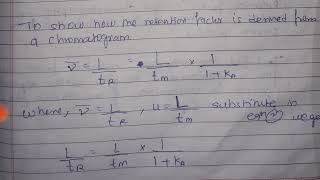 To show how the retention factor is derived from
a chromatogram
v̄ = L/tR = L/tM × 1/1+kA
where, v̄ = L/tR, u = L/tM substitute in
eqn we ge
L/tR = L/tM × 1/1+kA